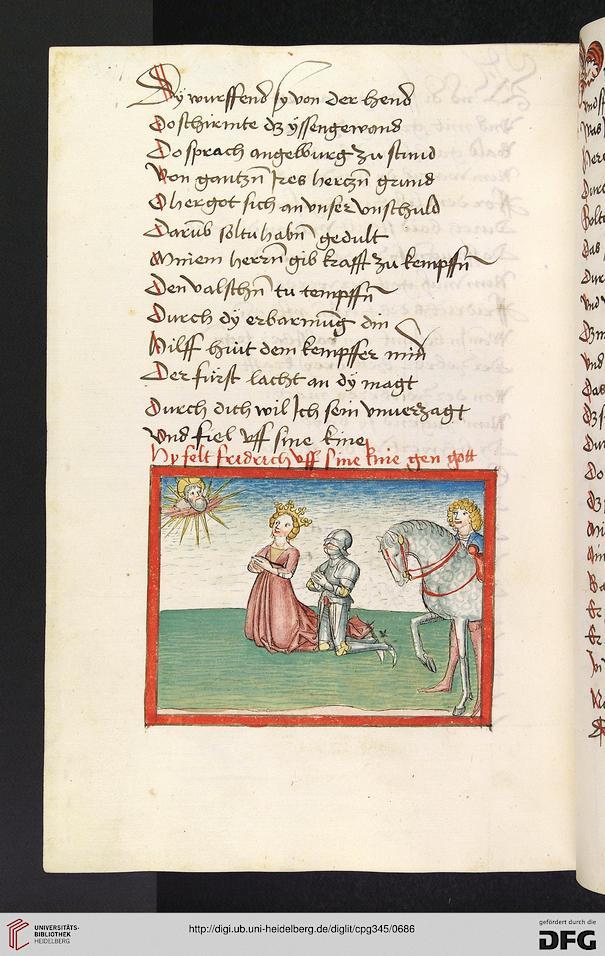 Dÿ wurffend sy von der hend
Do schirmte dz ÿssengewand
Do sprach angelburg zu stund
Von gantzn̄ Ires hertzn̄ grund
O hergot sich an vnser vnschuld
Darūb soltu habn̄ gedult
Minem herrn̄ gib krafft zu kempffn̄
Den valschn̄ tu tempffn̄
Durch dÿ erbarmūg din
Hilff hiut dem kempffer min
Der fürst lacht an dÿ magt
Durch dich wil Ich sein vnuerzagt
Vnd fiel vff sine knie
Hy felt fridrich vff sine knie gen gott
UNIVERSITÄTS-
BIBLIOTHEK
HEIDELBERG
http://digi.ub.uni-heidelberg.de/diglit/cpg345/0686
gefördert durch die
DFG